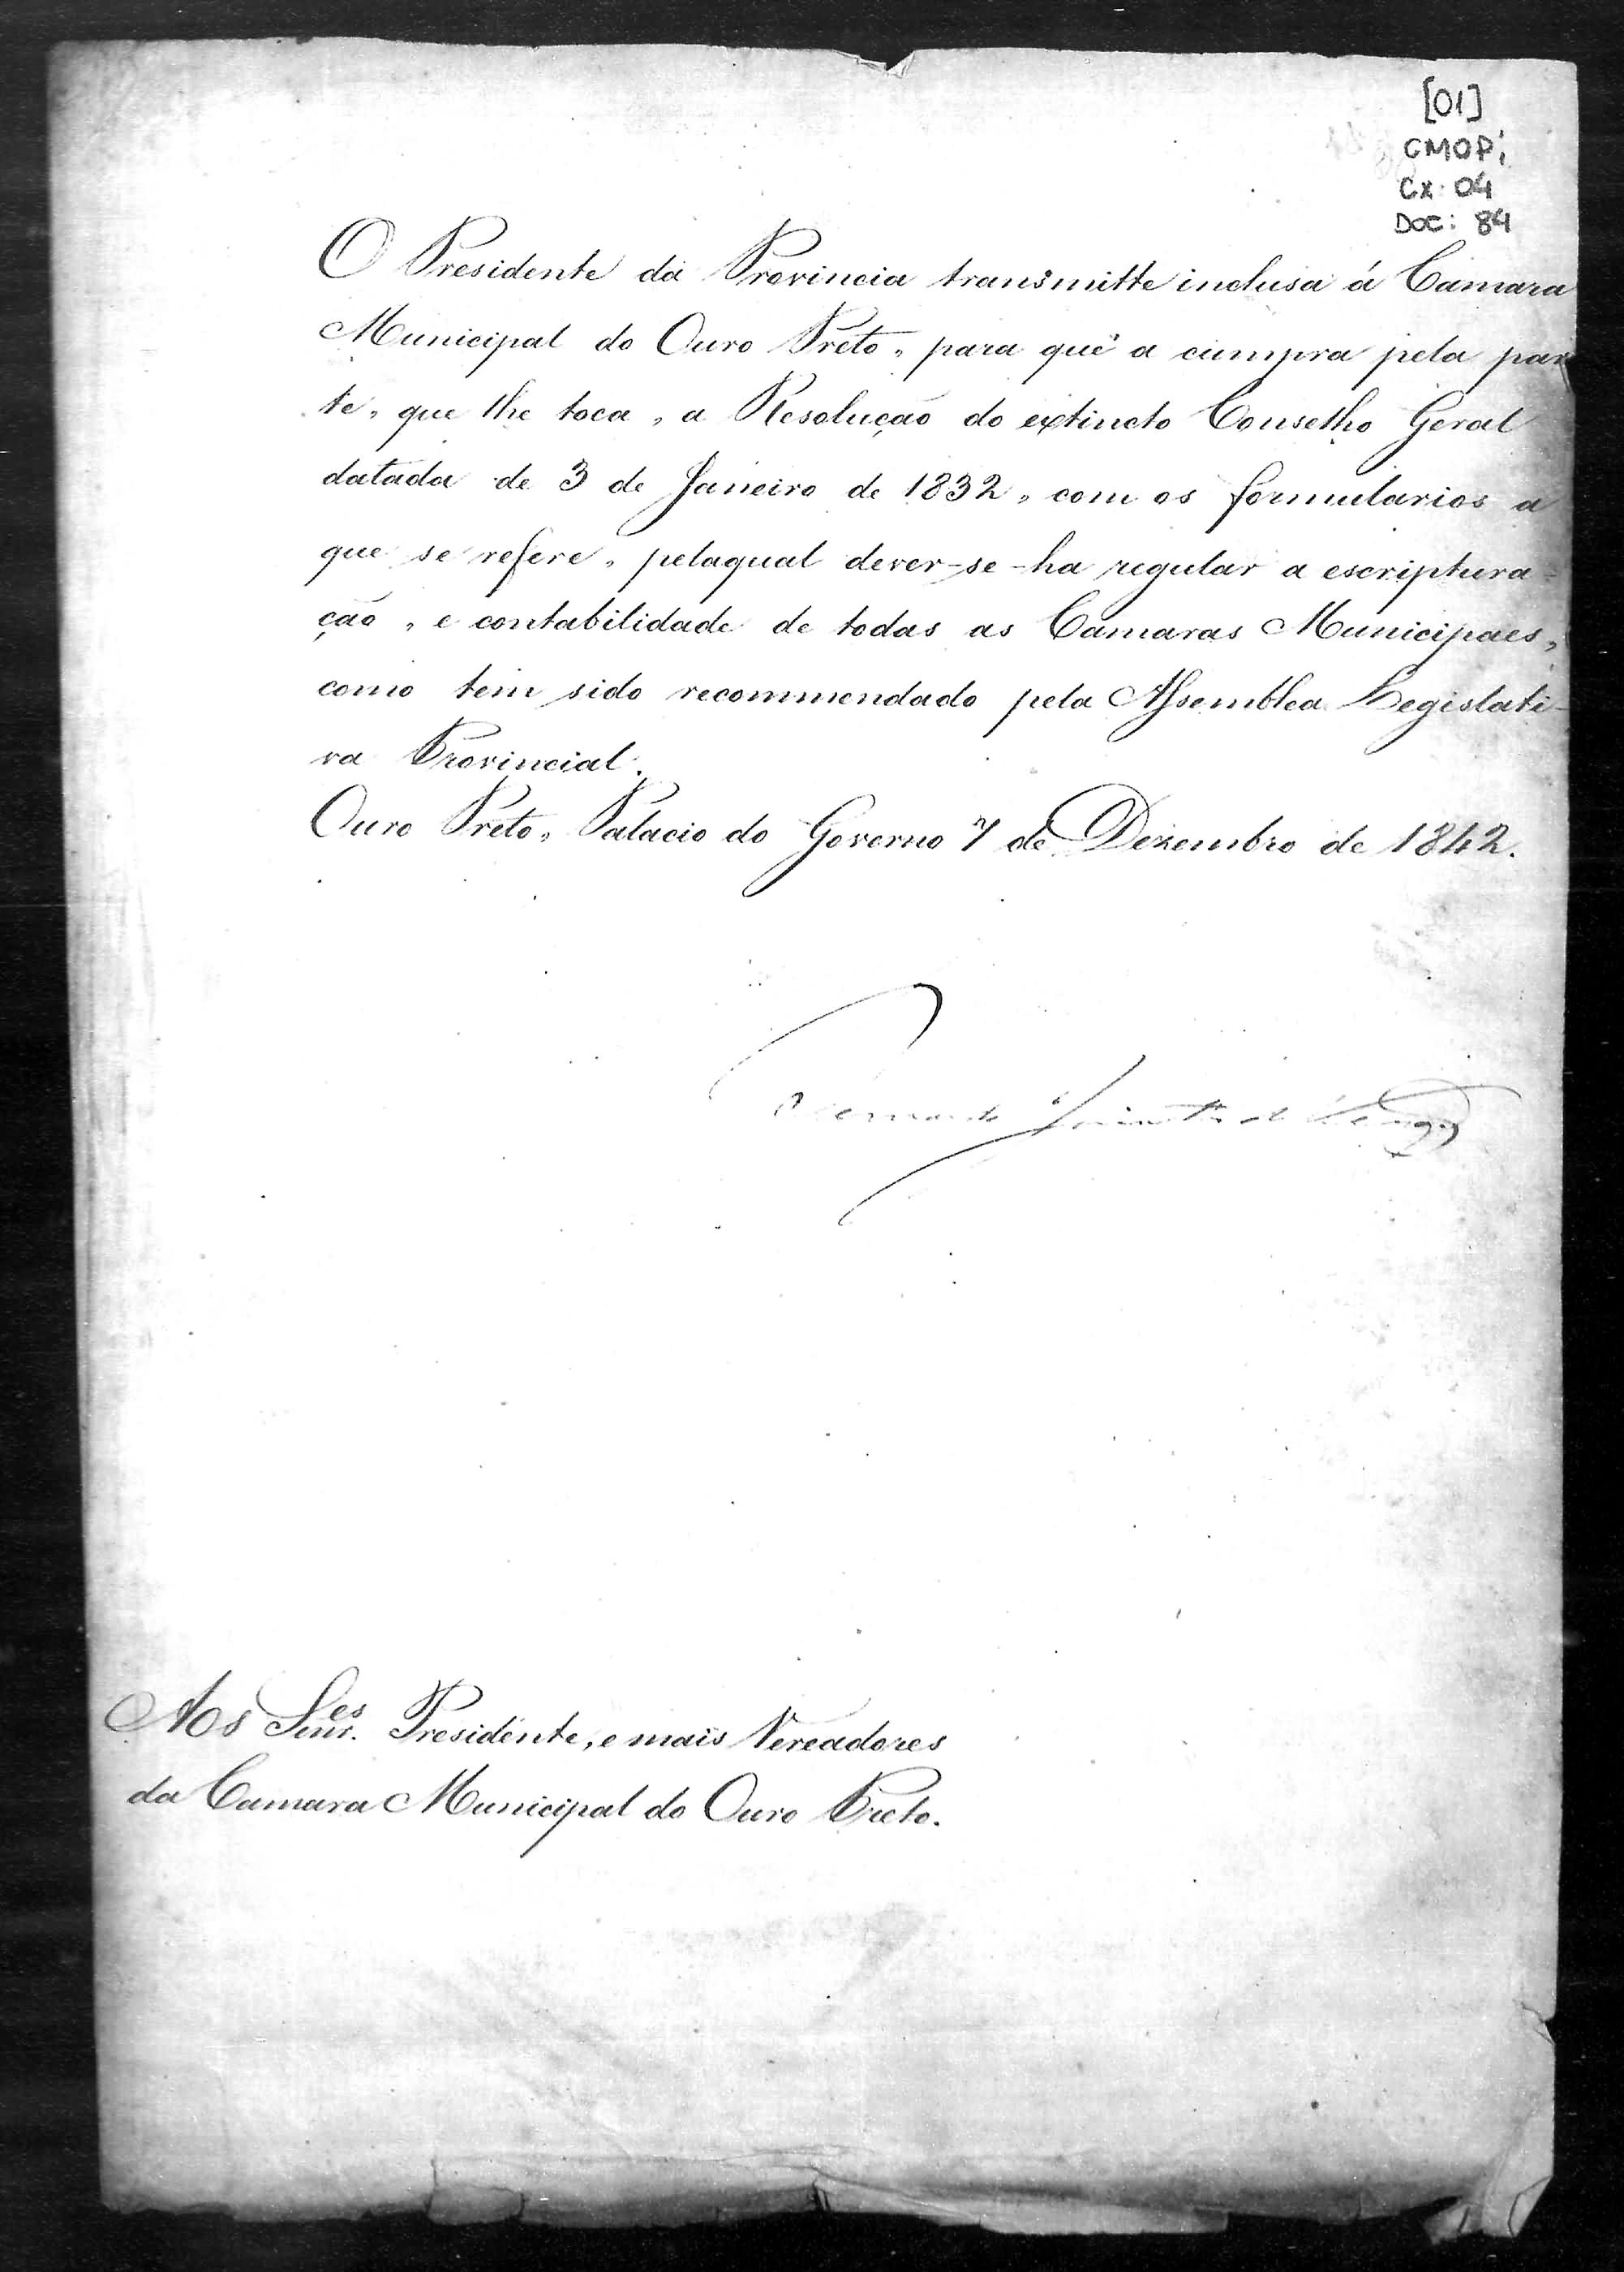 [01]
CMOP;
Cx: 04
DOC: 84
O Presidente da Provincia transmitte inclusa á Camara
Municipal do Ouro Preto, para que a cumpra pela par
te, que lhe toca, a Resolução do extincto Conselho Geral
datada de 3 de Janeiro de 1832, com os formularios a
que se refere, pelaqual dever-se-ha regular a escriptura-
ção, e contabilidade de todas as Camaras Municipaes,
como tem sido recommendado pela Assemblea Legislati-
va Provincial.
Ouro Preto, Palacio do Governo 7 de Dezembro de 1842.
Aos Senr.es Presidente, e mais Vereadores
da Camara Municipal do Ouro Preto.